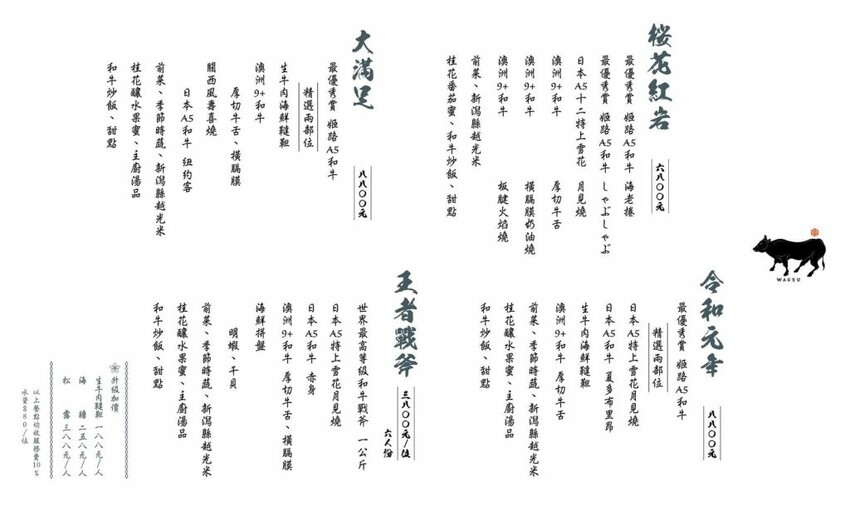 桜花紅岩
六八〇〇元
最優秀賞 姬路A5和牛 海老捲
最優秀賞 姬路A5和牛 しゃぶしゃぶ
日本A5十二特上雪花 月見燒
澳洲9+和牛 厚切牛舌
澳洲9+和牛 橫膈膜奶油燒
澳洲9+和牛 板腱火焰燒
前菜、新潟縣越光米
桂花番茄蜜、和牛炒飯、甜點
大滿足
八八〇〇元
最優秀賞 姬路A5和牛
精選兩部位
生牛肉海鮮韃靼
澳洲9+和牛
厚切牛舌、橫膈膜
關西風壽喜燒
日本A5和牛 紐約客
前菜、季節時蔬、新潟縣越光米
桂花釀水果蜜、主廚湯品
和牛炒飯、甜點
WAGYU
令和元年
八八〇〇元
最優秀賞 姬路A5和牛
精選兩部位
日本A5特上雪花月見燒
日本A5和牛 夏多布里昂
生牛肉海鮮韃靼
澳洲9+和牛 厚切牛舌
前菜、季節時蔬、新潟縣越光米
桂花釀水果蜜、主廚湯品
和牛炒飯、甜點
王者戰斧
三八〇〇元/位
六人份
世界最高等級和牛戰斧 一公斤
日本A5特上雪花月見燒
日本A5和牛 赤身
澳洲9+和牛 厚切牛舌、橫膈膜
海鮮拼盤
明蝦、干貝
前菜、季節時蔬、新潟縣越光米
桂花釀水果蜜、主廚湯品
和牛炒飯、甜點
升級加價
生牛肉韃靼 一八八元/人
海膽 二五八元/人
松露 三八八元/人
以上餐點均收服務費10%
水資$80/位